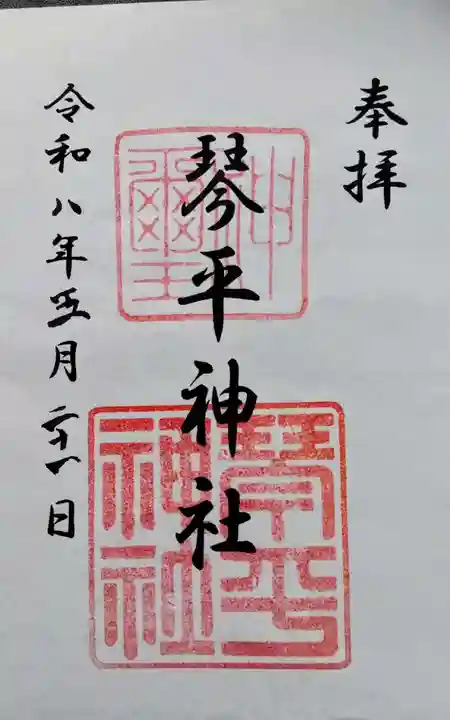 奉拝
琴平神社
令和八年五月二十一日
神璽
琴平
神社